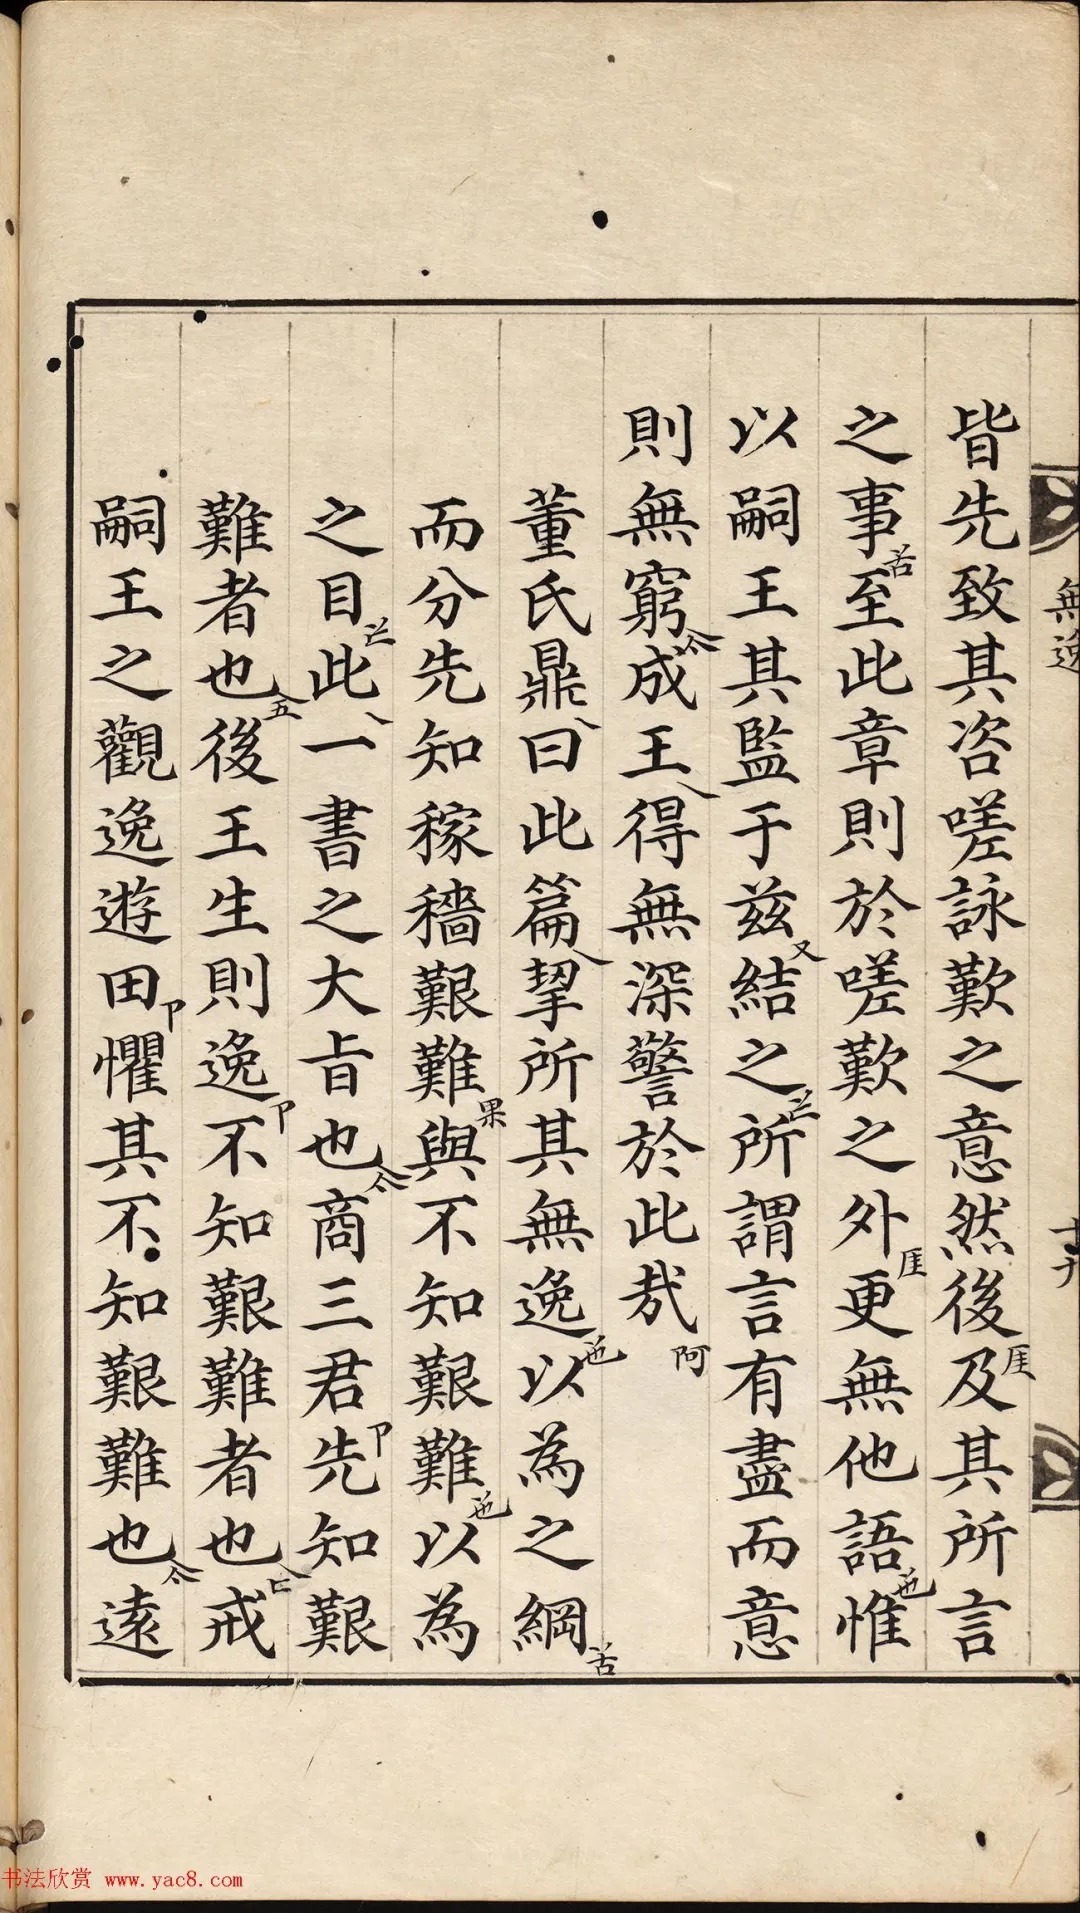 無逸
十九
皆先致其咨嗟詠歎之意然後厓及其所言
之事苦至此章則於嗟歎之外厓更無他語也惟
以嗣王其監于兹又結之㐌所謂言有盡而意
則無窮仒成王乀得無深警於此㦲阿
董氏鼎乀曰此篇乀挈所其無逸也以為之綱苦
而分先知稼穡艱難果與不知艱難也以為
之目㐌此乀一書之大㫖也仒商三君先卩知艱
難者也五後王生則逸卩不知艱難者也戒
嗣王之觀逸遊田卩懼其不知艱難也仒遠
书法欣赏 www.yac8.com